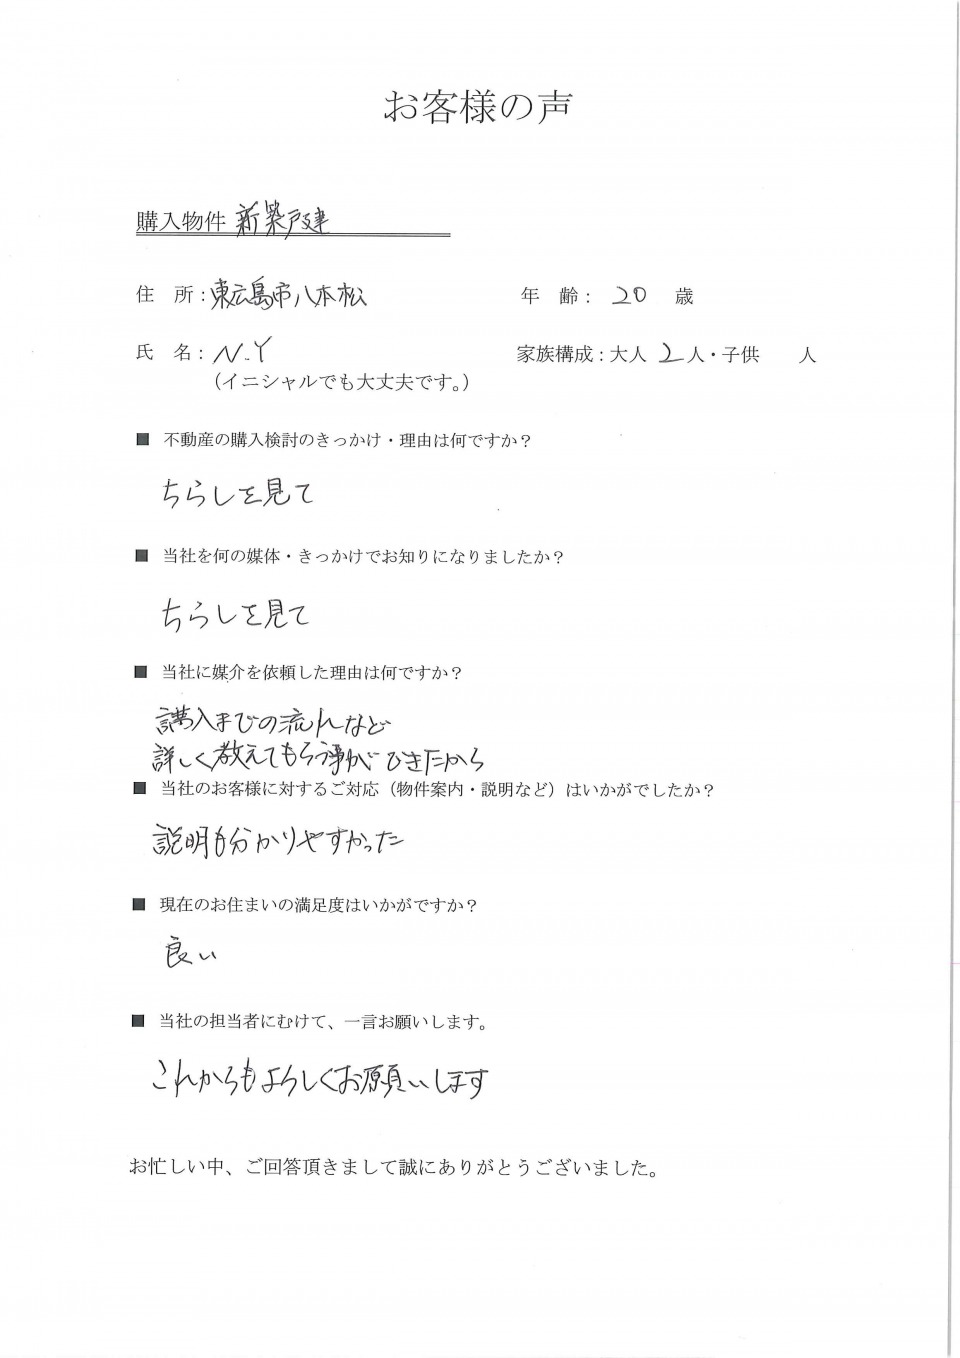 お客様の声
購入物件 新築戸建
住 所：東広島市八本松 年 齢： 20 歳
氏 名：N.Y 家族構成：大人 2 人・子供 人
（イニシャルでも大丈夫です。）
■ 不動産の購入検討のきっかけ・理由は何ですか？
ちらしを見て
■ 当社を何の媒体・きっかけでお知りになりましたか？
ちらしを見て
■ 当社に媒介を依頼した理由は何ですか？
購入までの流れなど
詳しく教えてもらう事ができたから
■ 当社のお客様に対するご対応（物件案内・説明など）はいかがでしたか？
説明も分かりやすかった
■ 現在のお住まいの満足度はいかがですか？
良い
■ 当社の担当者にむけて、一言お願いします。
これからもよろしくお願いします
お忙しい中、ご回答頂きまして誠にありがとうございました。